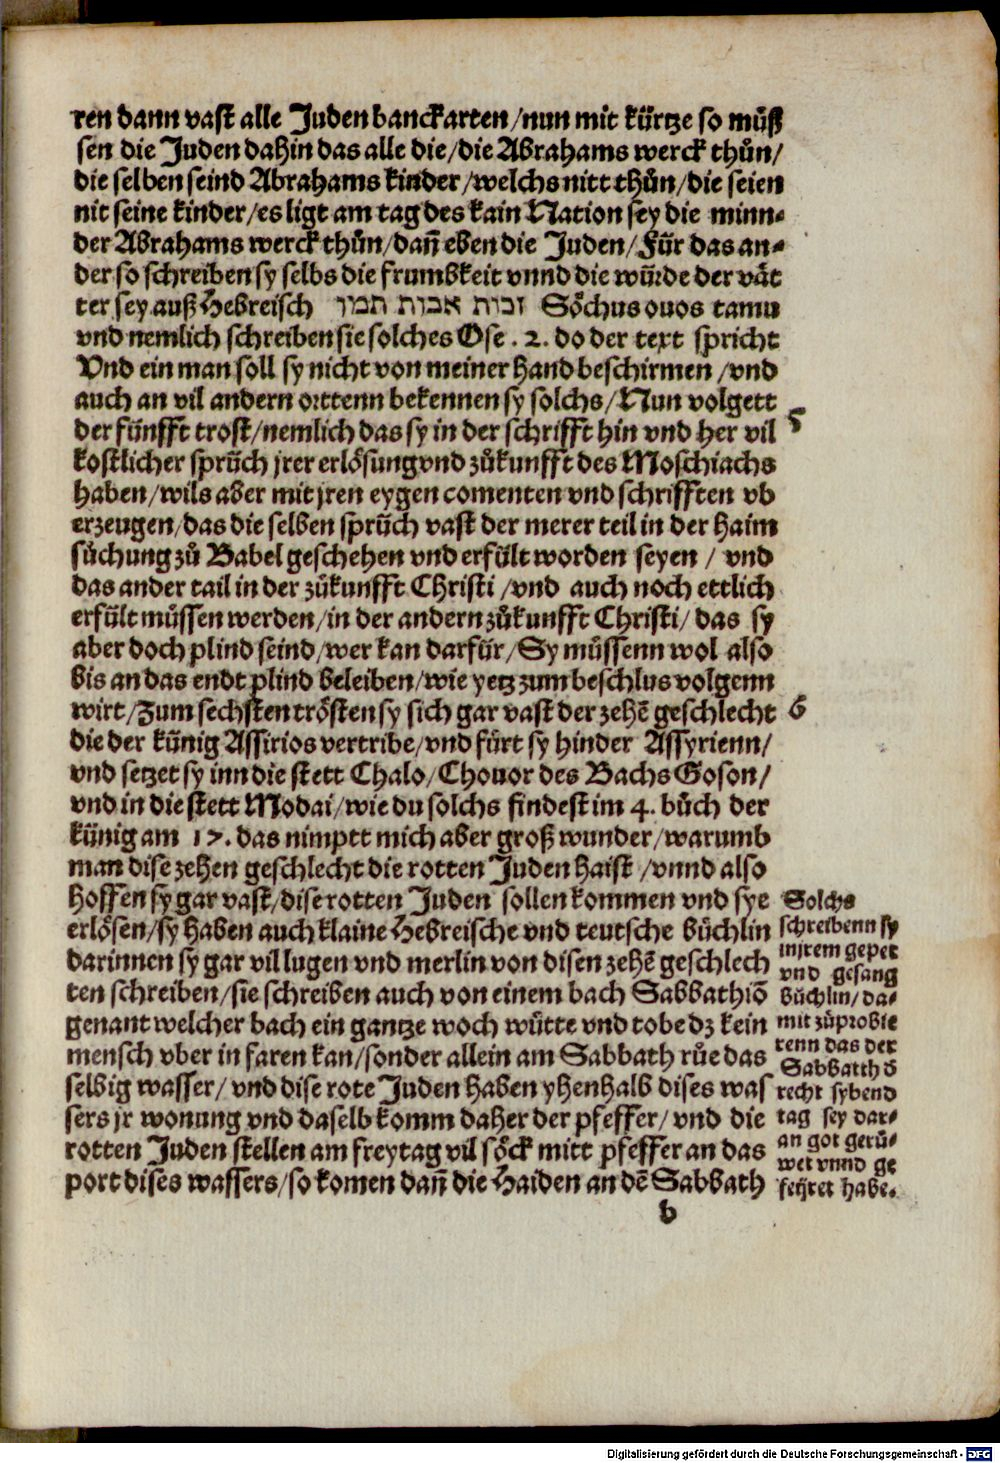 ren dann vast alle Juden banckarten/nun mit kürtze so müß
sen die Juden dahin das alle die/die Abrahams werck thůn/
die selben seind Abrahams kinder/welchs nitt thůn/die seien
nit seine kinder/es ligt am tag des kain Nation sey die minn⸗
der Abrahams werck thůn/dañ eben die Juden/Für das an⸗
der so schreiben sy selbs die frumbkeit vnnd die würde der vät
ter sey auß Hebreisch זכות אבות תמו Söchus ovos tamu
vnd nemlich schreiben sie solches Ose . 2. do der text spricht
Vnd ein man soll sy nicht von meiner hand beschirmen /vnd
auch an vil andern orttenn bekennen sy solchs/Nun volgett
der fünfft trost/nemlich das sy in der schrifft hin vnd her vil
5
kostlicher sprüch jrer erlösung vnd zůkunfft des Moschiachs
haben/wils aber mit jren eygen comenten vnd schrifften vb
erzeugen/das die selben sprüch vast der merer teil in der haim
sůchung zů Babel geschehen vnd erfült worden seyen / vnd
das ander tail in der zůkunfft Christi /vnd auch noch ettlich
erfült müssen werden/in der andern zůkunfft Christi/ das sy
aber doch plind seind/wer kan darfür/Sy müssenn wol also
bis an das endt plind beleiben/wie yetz zum beschlus volgenn
wirt/Zum sechsten trösten sy sich gar vast der zehē geschlecht
6
die der künig Assirios vertribe/vnd fürt sy hinder Assyrienn/
vnd setzet sy inn die stett Chalo/Chouor des Bachs Goson/
vnd in die stett Modai/wie du solchs findest im 4. bůch der
künig am 17. das nimptt mich aber groß wunder/warumb
man dise zehen geschlecht die rotten Juden haist /vnnd also
hoffen sy gar vast/dise rotten Juden sollen kommen vnd sye
erlösen/sy haben auch klaine Hebreische vnd teutsche büchlin
darinnen sy gar vil lugen vnd merlin von disen zehē geschlech
ten schreiben/sie schreiben auch von einem bach Sabbathiō
genant welcher bach ein gantze woch wütte vnd tobe dz kein
mensch vber in faren kan/sonder allein am Sabbath růe das
selbig wasser/ vnd dise rote Juden haben yhenhalb dises was
sers jr wonung vnd daselb komm daher der pfeffer/ vnd die
rotten Juden stellen am freytag vil söck mitt pfeffer an das
port dises wassers/so komen dañ die Haiden an dē Sabbath
b
Solchs
schreibenn sy
in jrem gepet
vnd gesang
büchlin/da⸗
mit zů probie
renn das der
Sabbatth ð
recht sybend
tag sey dar⸗
an got gerů⸗
wet vnnd ge
feyret habe.
Digitalisierung gefördert durch die Deutsche Forschungsgemeinschaft - DFG